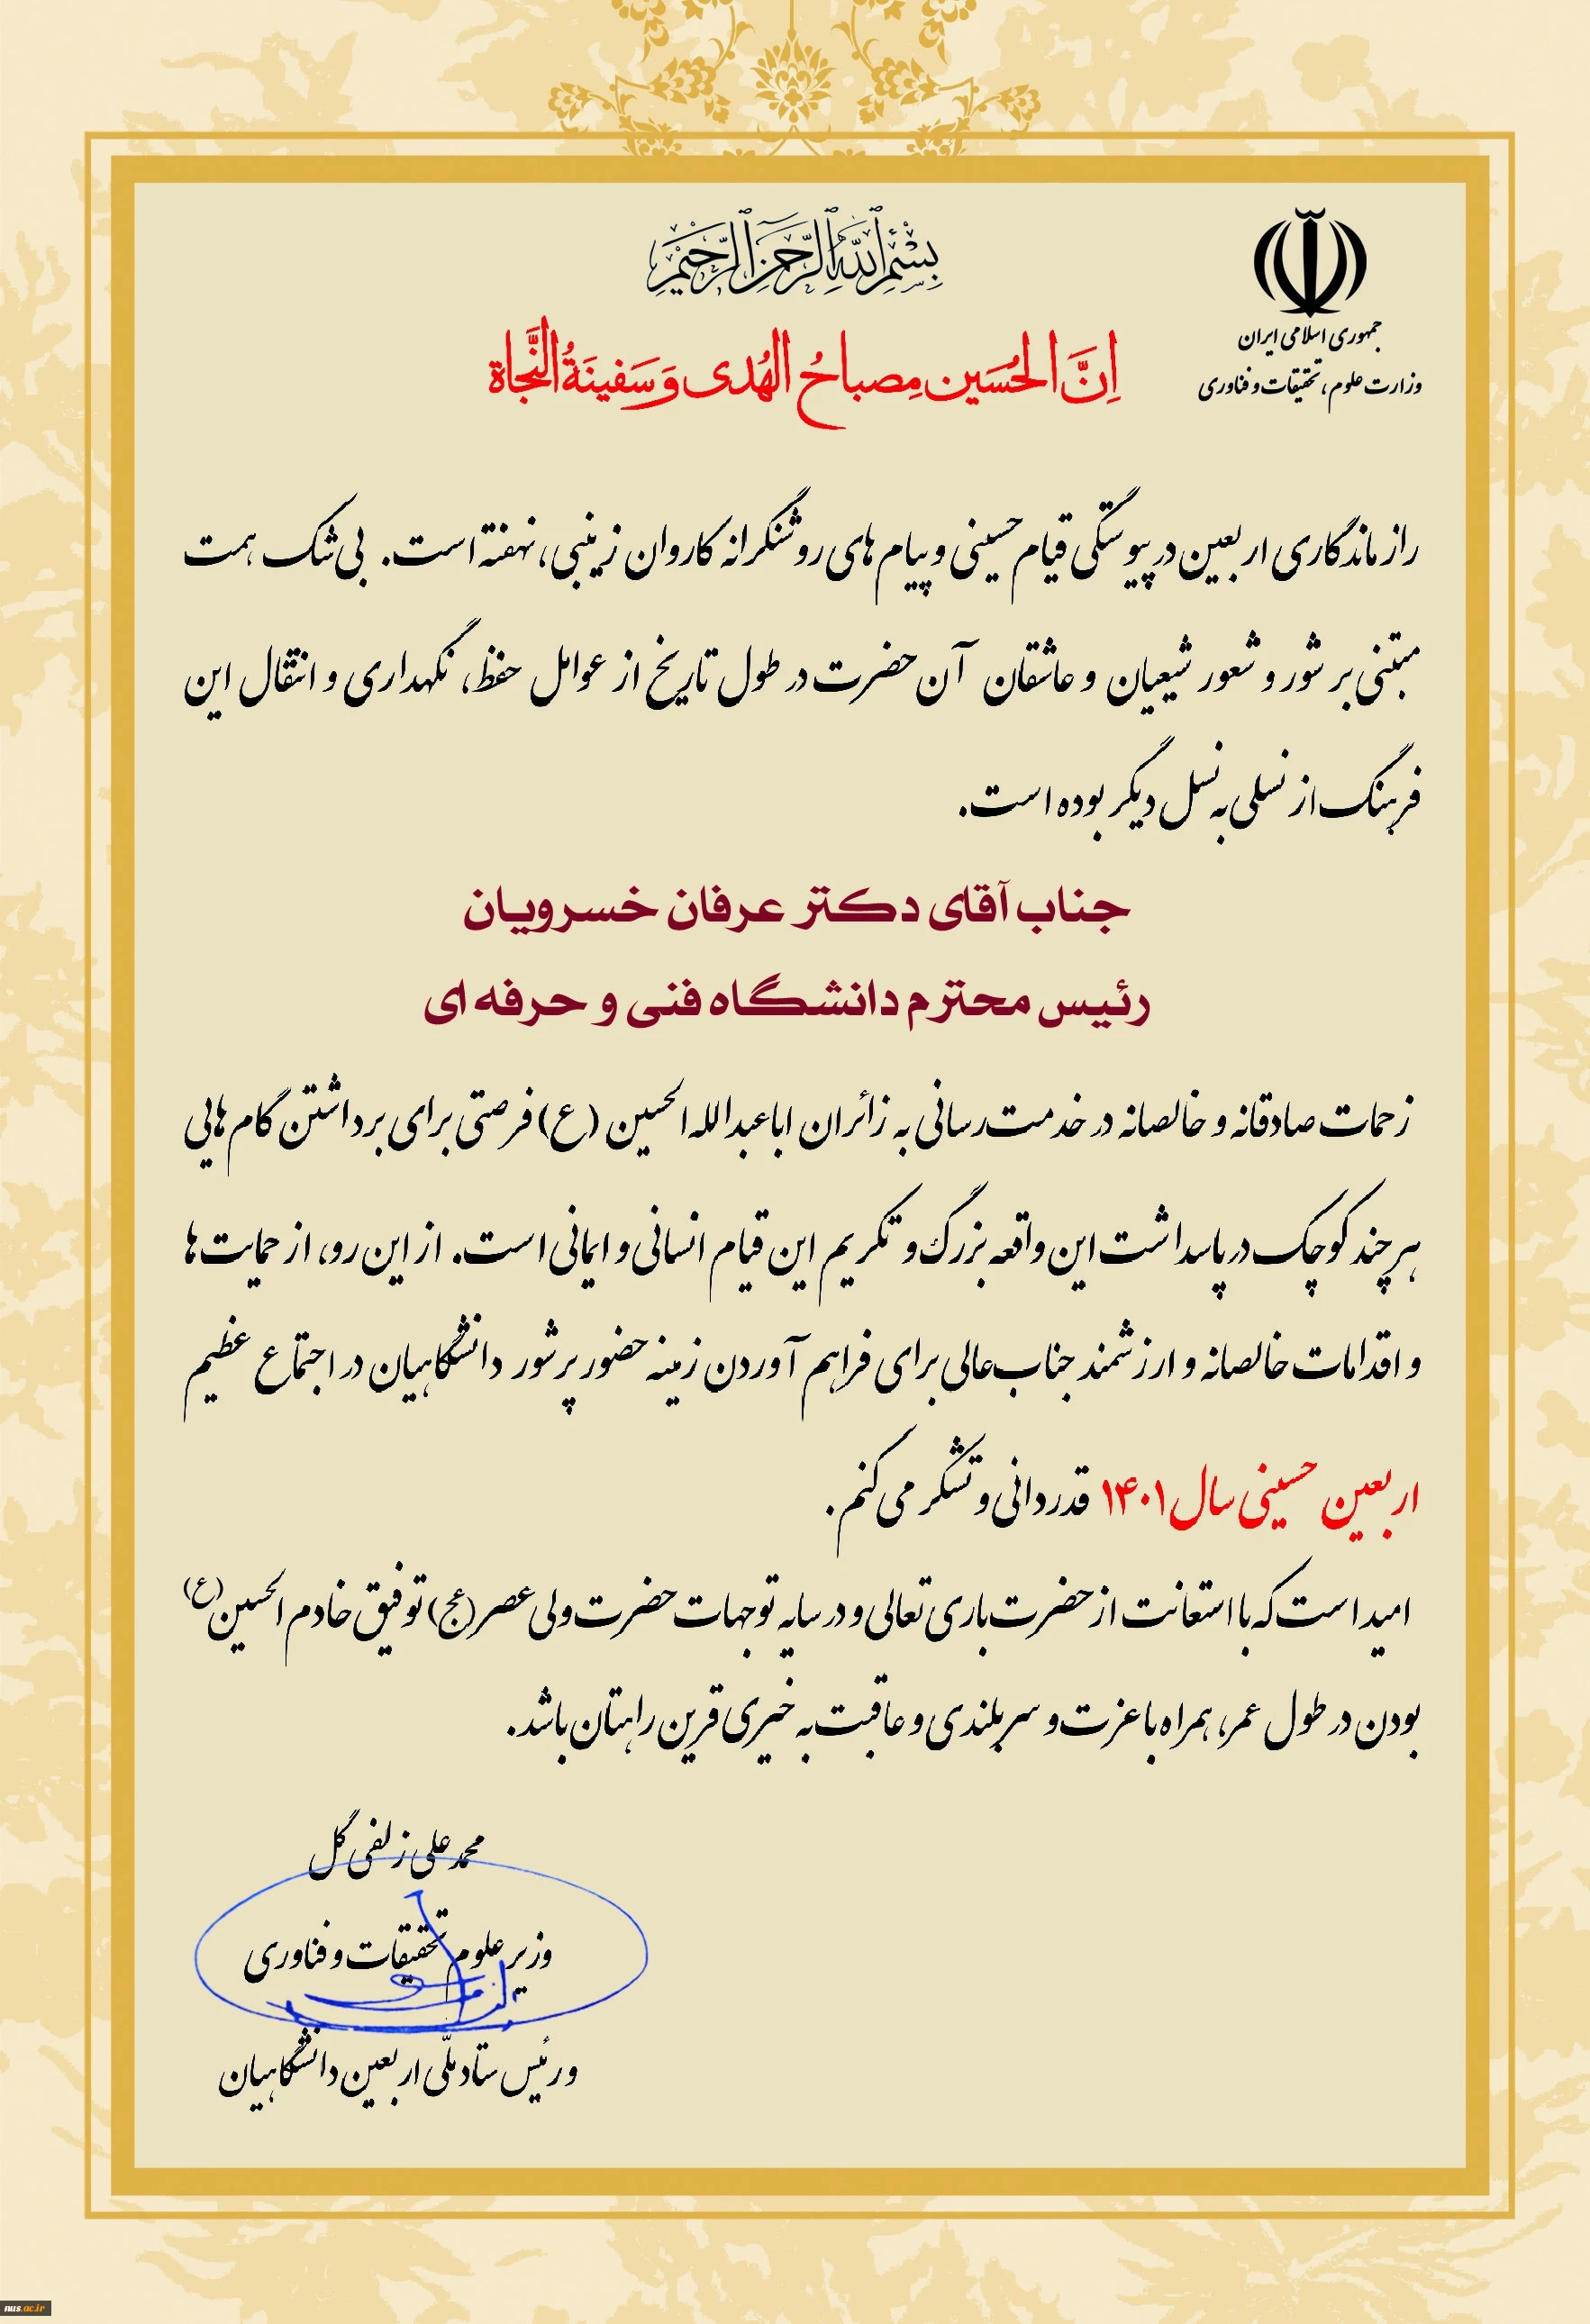 بِسْمِ ٱللَّهِ ٱلرَّحْمَٰنِ ٱلرَّحِيمِ
جمهوری اسلامی ایران
وزارت علوم، تحقیقات و فناوری
اِنَّ الحُسَین مِصباحُ الهُدی وَ سَفینَةُ النَّجاة
راز ماندگاری اربعین در پیوستگی قیام حسینی و پیام های روشنگرانه کاروان زینبی، نهفته است. بی شک همت
مبتنی بر شور و شعور شیعیان و عاشقان آن حضرت در طول تاریخ از عوامل حفظ، نگهداری و انتقال این
فرهنگ از نسلی به نسل دیگر بوده است.
جناب آقای دکتر عرفان خسرویان
رئیس محترم دانشگاه فنی و حرفه ای
زحمات صادقانه و خالصانه در خدمت رسانی به زائران اباعبدالله الحسین (ع) فرصتی برای برداشتن گام هایی
هر چند کوچک در پاسداشت این واقعه بزرگ و تکریم این قیام انسانی و ایمانی است. از این رو، از حمایت ها
و اقدامات خالصانه و ارزشمند جناب عالی برای فراهم آوردن زمینه حضور پرشور دانشگاهیان در اجتماع عظیم
اربعین حسینی سال ۱۴۰۱ قدردانی و تشکر می کنم.
امید است که با استعانت از حضرت باری تعالی و در سایه توجهات حضرت ولی عصر (عج) توفیق خادم الحسین (ع)
بودن در طول عمر، همراه با عزت و سربلندی و عاقبت به خیری قرین راهتان باشد.
محمد علی زلفی گل
وزیر علوم تحقیقات و فناوری
و رئیس ستاد ملّی اربعین دانشگاهیان
nus.ac.ir